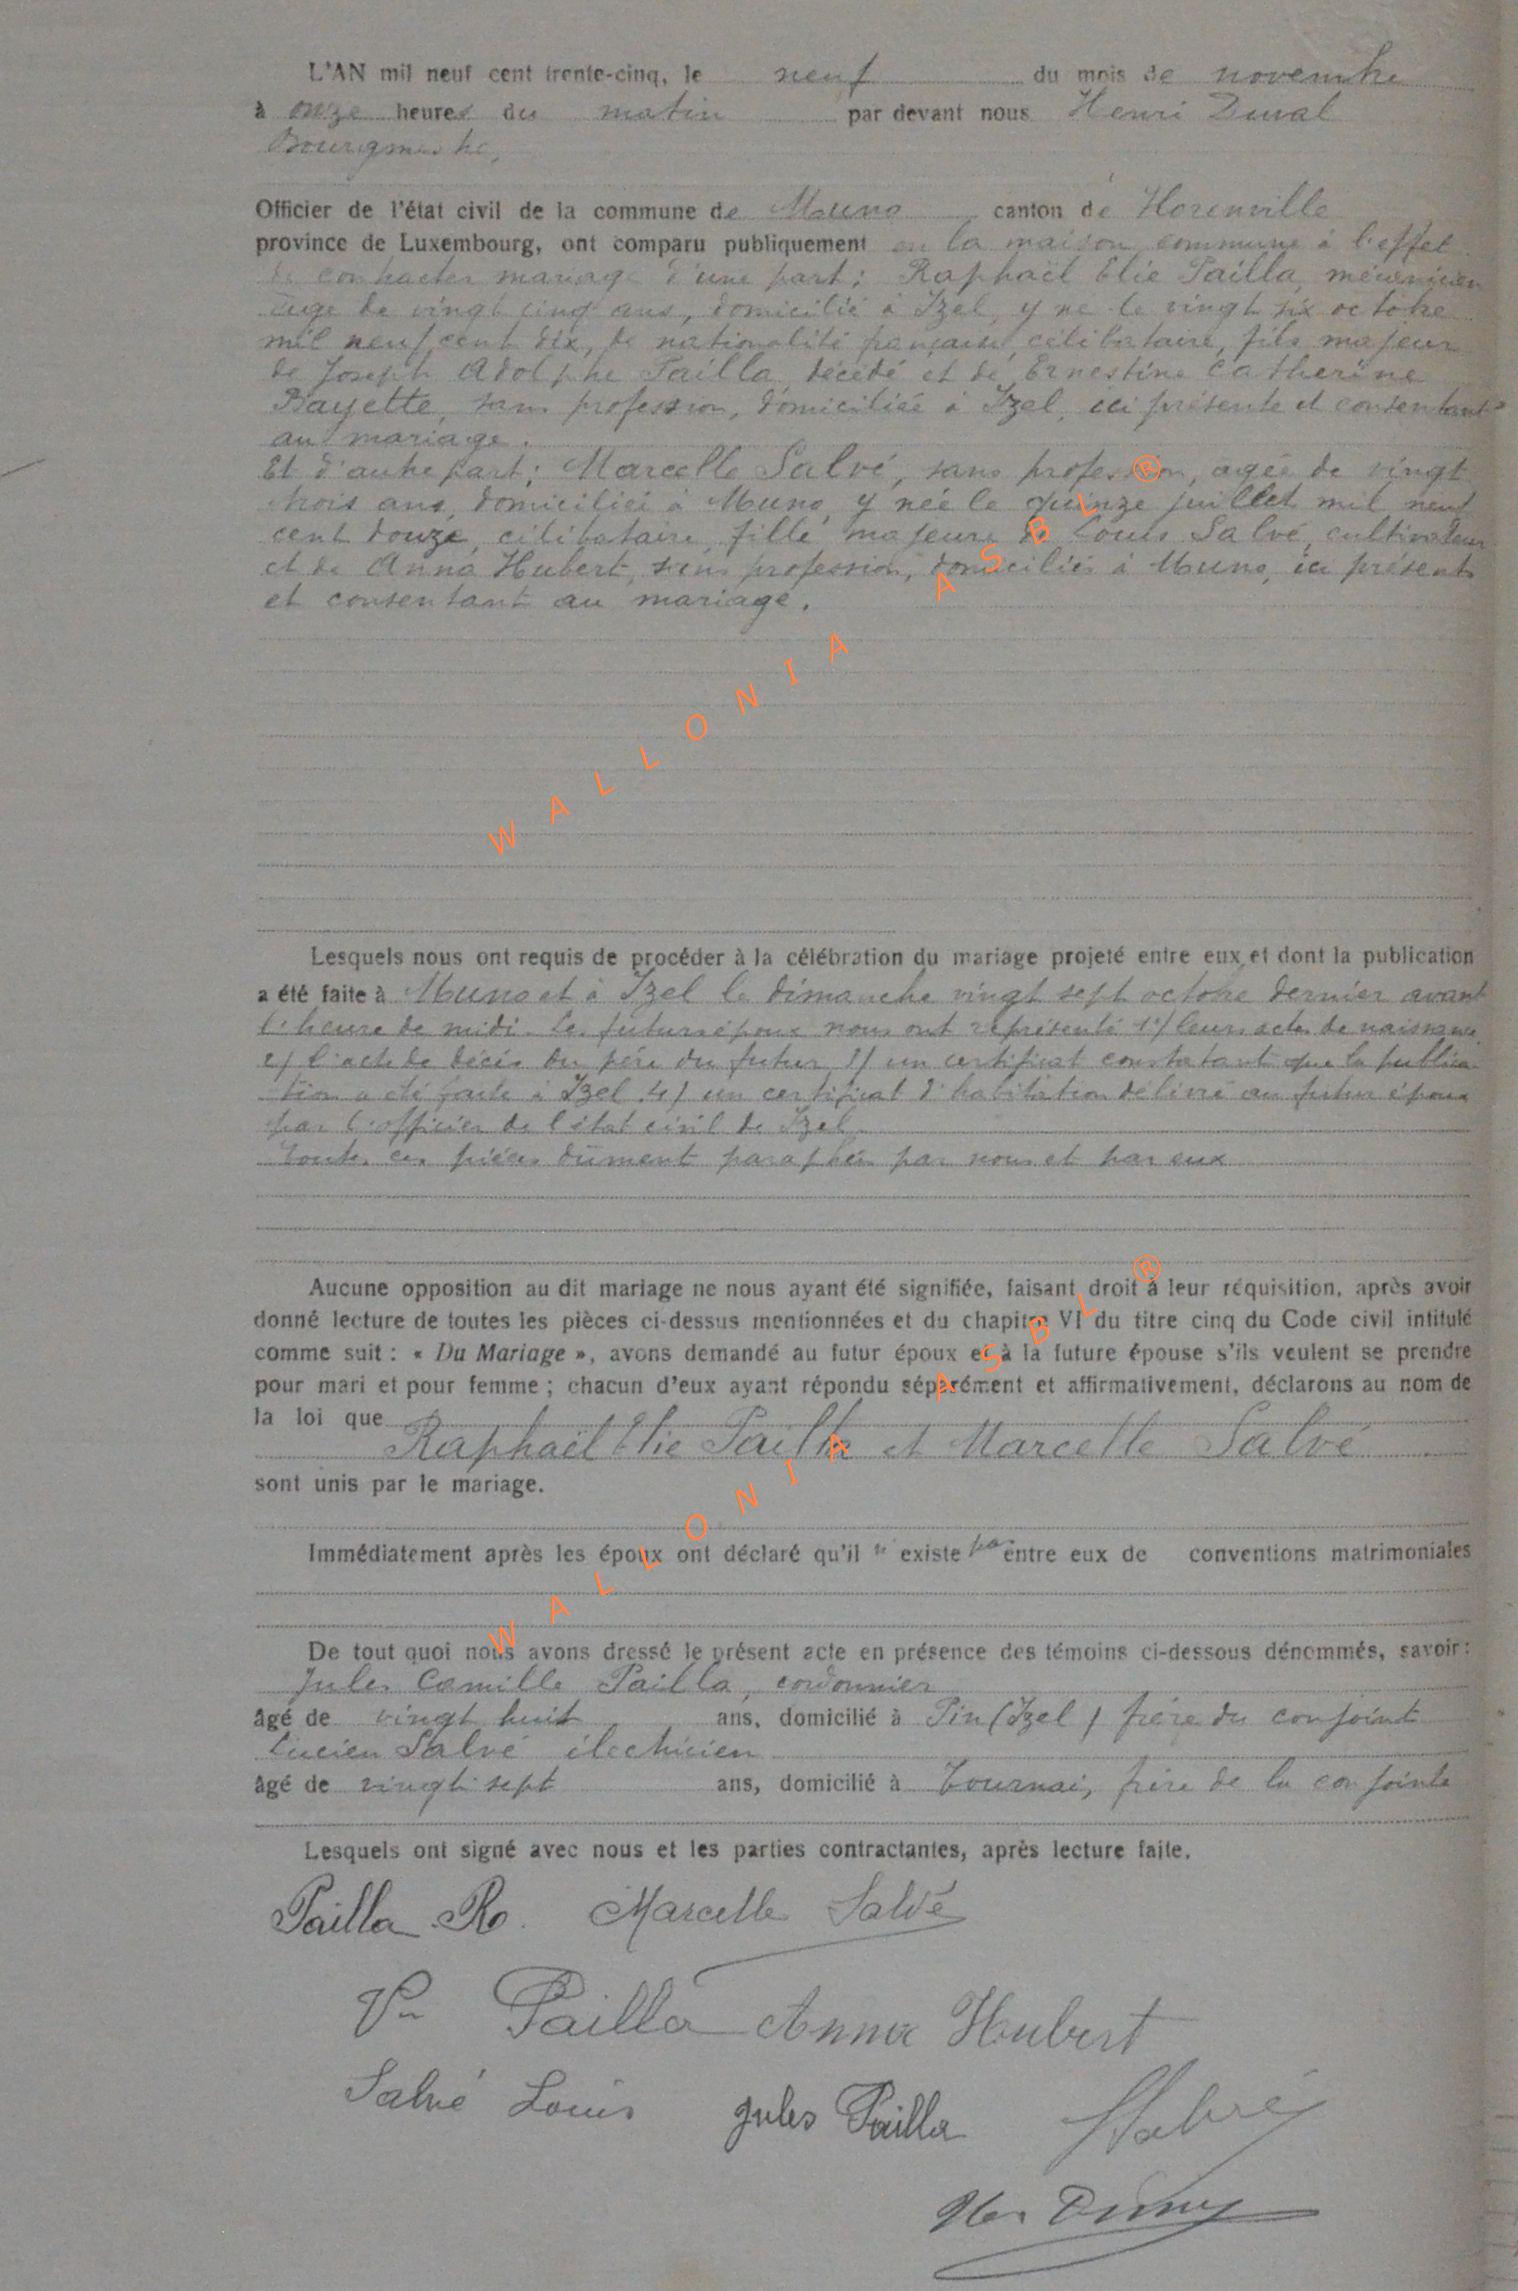 L'AN mil neuf cent trente-cinq, le neuf du mois de novembre
à onze heures du matin par devant nous Henri Duval
Bourgmestre,
Officier de l'état civil de la commune de Muno canton de Florenville
province de Luxembourg, ont comparu publiquement en la maison commune à l'effet
de contracter mariage d'une part: Raphaël Elie Pailla, mécanicien
âgé de vingt cinq ans, domicilié à Izel, y né le vingt six octobre
mil neuf cent dix, de nationalité française, célibataire, fils majeur
de Joseph Adolphe Pailla, décédé et de Ernestine Catherine
Bayette, sans profession, domiciliée à Izel, ici présente et consentante
au mariage.
Et d'autre part; Marcelle Salvé, sans profession, agée de vingt
trois ans, domiciliée à Muno, y née le quinze juillet mil neuf
cent douze, célibataire, fille majeure de Louis Salvé, cultivateur
et de Anna Hubert, sans profession, domiciliés à Muno, ici présents
et consentant au mariage.
Lesquels nous ont requis de procéder à la célébration du mariage projeté entre eux et dont la publication
a été faite à Muno et à Izel le dimanche vingt sept octobre dernier avant
l'heure de midi. Les futurs époux nous ont représenté 1°/ leurs actes de naissance
2/ l'acte de décès du père du futur, 3/ un certificat constatant que la publica-
tion a été faite à Izel 4/ un certificat d'habitation délivré au futur époux
par l'officier de l'état civil de Izel.
Toutes ces pièces dûment paraphées par nous et par eux
Aucune opposition au dit mariage ne nous ayant été signifiée, faisant droit à leur réquisition, après avoir
donné lecture de toutes les pièces ci-dessus mentionnées et du chapitre VI du titre cinq du Code civil intitulé
comme suit : « Du Mariage », avons demandé au futur époux et à la future épouse s'ils veulent se prendre
pour mari et pour femme ; chacun d'eux ayant répondu séparément et affirmativement, déclarons au nom de
la loi que
Raphaël Elie Pailla et Marcelle Salvé
sont unis par le mariage.
Immédiatement après les époux ont déclaré qu'il n'existe pas entre eux de conventions matrimoniales
De tout quoi nous avons dressé le présent acte en présence des témoins ci-dessous dénommés, savoir :
Jules Camille Pailla, cordonnier
âgé de vingt huit ans, domicilié à Pin (Izel) frère du conjoint
Lucien Salvé électricien
âgé de vingt sept ans, domicilié à Tournai, frère de la conjointe
Lesquels ont signé avec nous et les parties contractantes, après lecture faite.
Pailla R. Marcelle Salvé
Vve Pailla Anna Hubert
Salvé Louis Jules Pailla LSalvé
Hri Duval
WALLONIA ASBL ®
WALLONIA ASBL ®